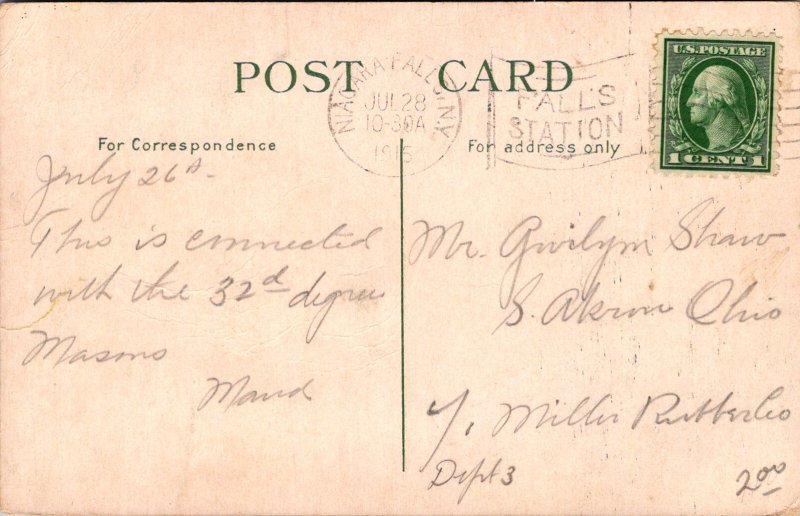 POST CARD
NIAGARA FALLS, N.Y.
JUL 28
10-30A
1915
FALLS
STATION
U.S. POSTAGE
1 CENT 1
For Correspondence
For address only
July 26th
This is connected
with the 32d degree
Masons
Maud
Mr. Gwilym Shaw
S. Akron Ohio
℅ Miller Rubber Co
Dept 3
2.00